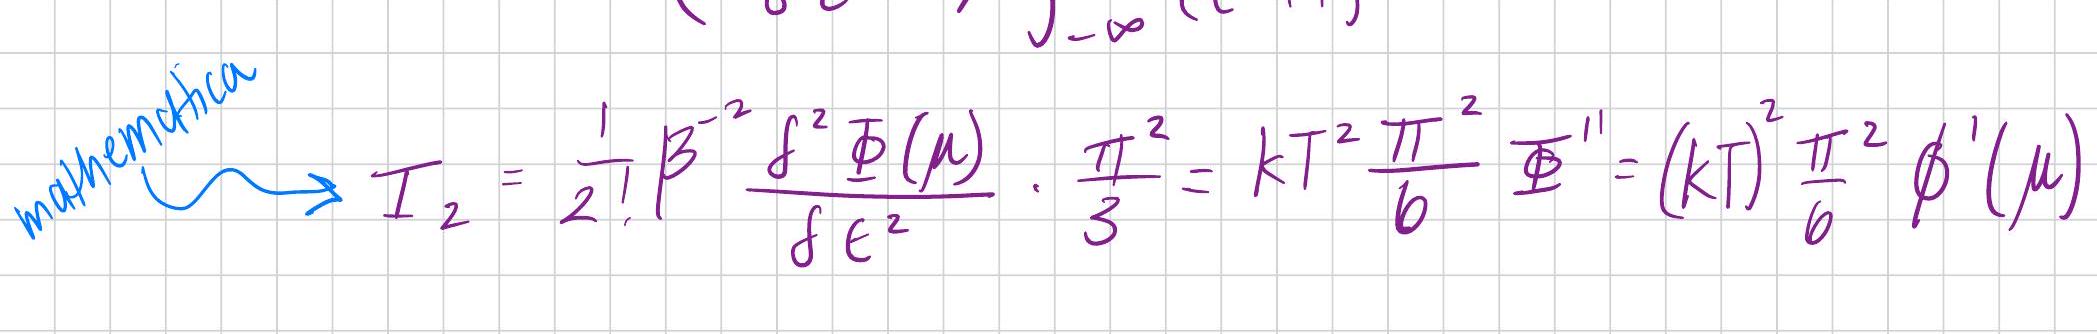 ∫_{-∞}
mathematica → I₂ = 1/2! β⁻² δ²Φ(μ)/δε² · π²/3 = kT² π²/6 Φ'' = (kT)² π²/6 ϕ'(μ)